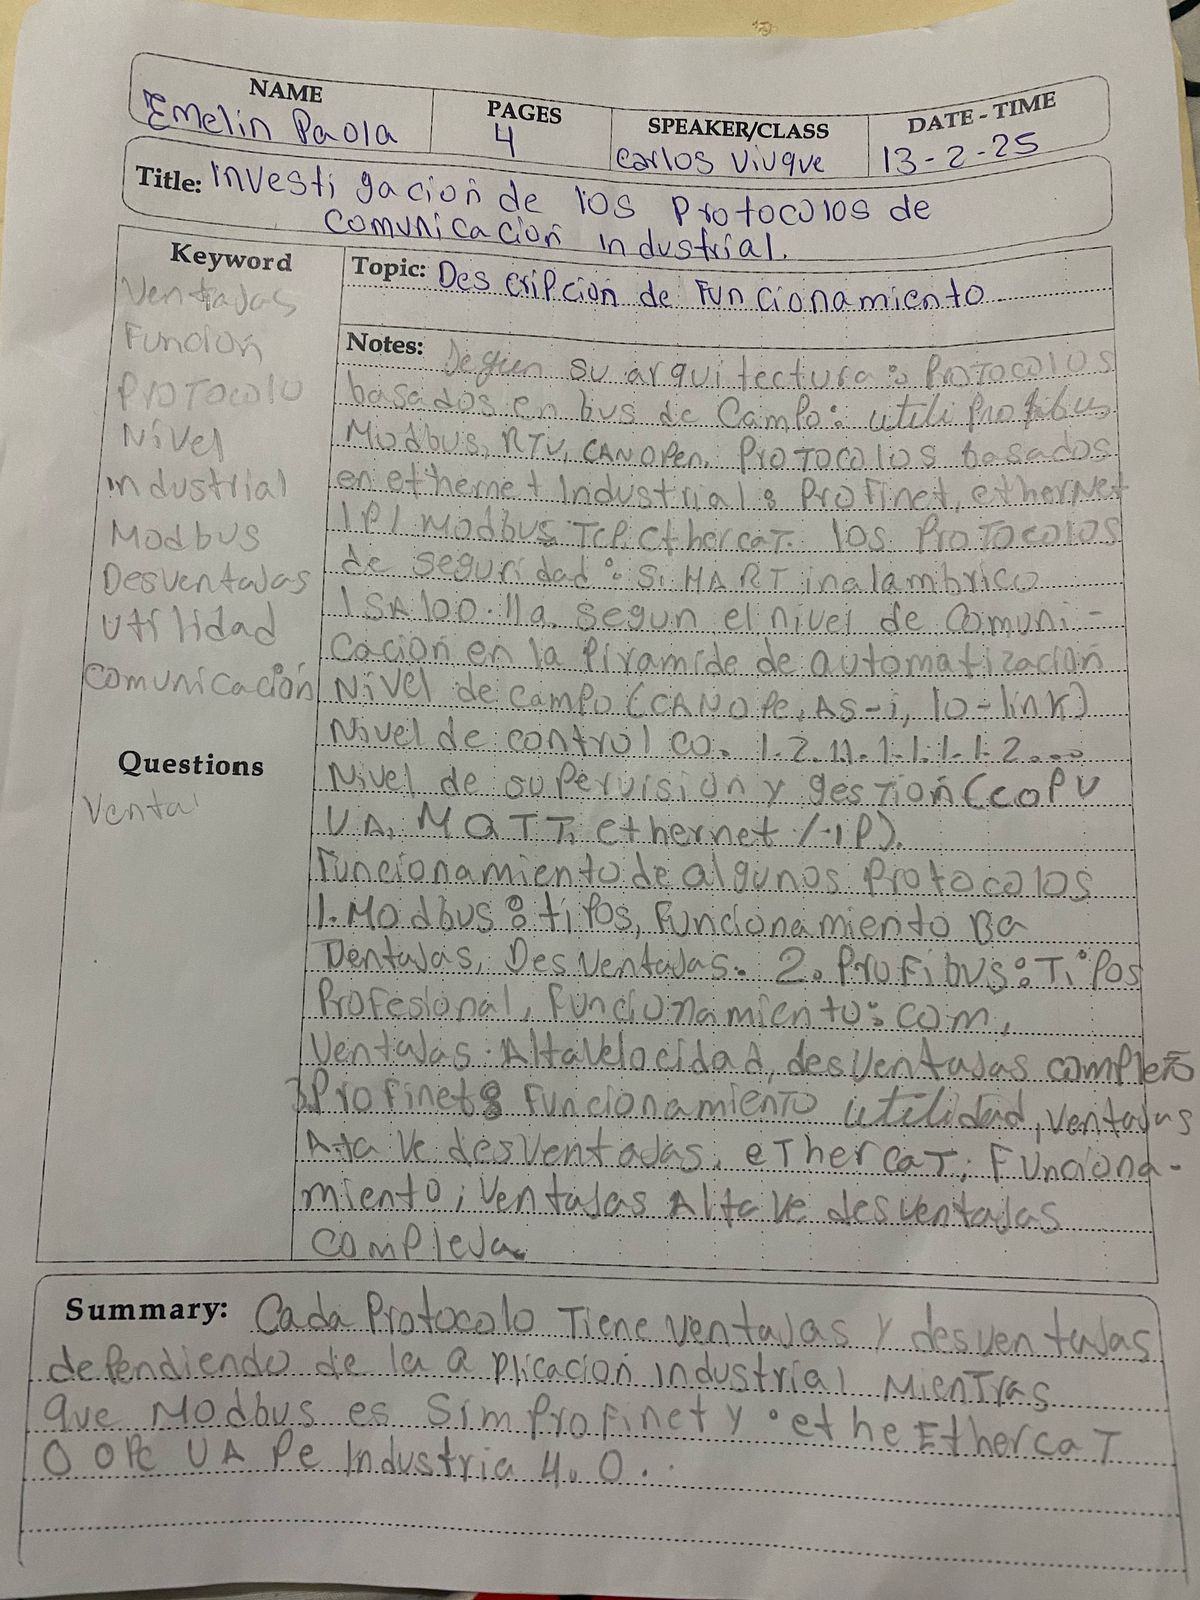 NAME
Emelin Paola
PAGES
4
SPEAKER/CLASS
Carlos Viuque
DATE - TIME
13-2-25
Title: investi gacion de los Protocolos de
comunicacion industrial.
Keyword
Ventajas
Funcion
Protocolo
Nivel
industrial
Modbus
Desventajas
utilidad
comunicacion
Questions
Ventai
Topic: Des cripcion de Fun cionamiento
Notes: Segun su arquitectura: Protocolos
basados en bus de Campo: utili Profibus
Modbus, RTU, CANOPen. Protocolos basados
en ethernet Industrial: Profinet, etherNet
IP/ Modbus TCP. Ethercat. los Protocolos
de seguridad: Si HART inalambrico
ISA100.11a. segun el nivel de Comuni-
cacion en la Piramide de automatizacion
Nivel de campo (CANOPe, AS-i, IO-link)
Nivel de control co. 1.2.11.1.1.1.1.2...
Nivel de supervision y gestion (COPU
UA, MQTT, ethernet /-IP).
Funcionamiento de algunos Protocolos
1. Modbus: tipos, Funcionamiento Ba
Ventajas, Desventajas. 2. Profibus: Tipos
Profesional, Funcionamiento: com,
Ventajas: Alta velocidad, desventajas complejo
3. Profinet: Funcionamiento utilidad, ventajas
Alta Ve desventajas, etherCat; Funciona-
miento; Ventajas Alta Ve desventajas
compleja.
Summary: Cada Protocolo Tiene ventajas y desventajas
dependiendo de la a plicacion industrial Mientras
que Modbus es Sim Profinet y ethe EthercaT
O OPC UA Pe Industria 4.0.